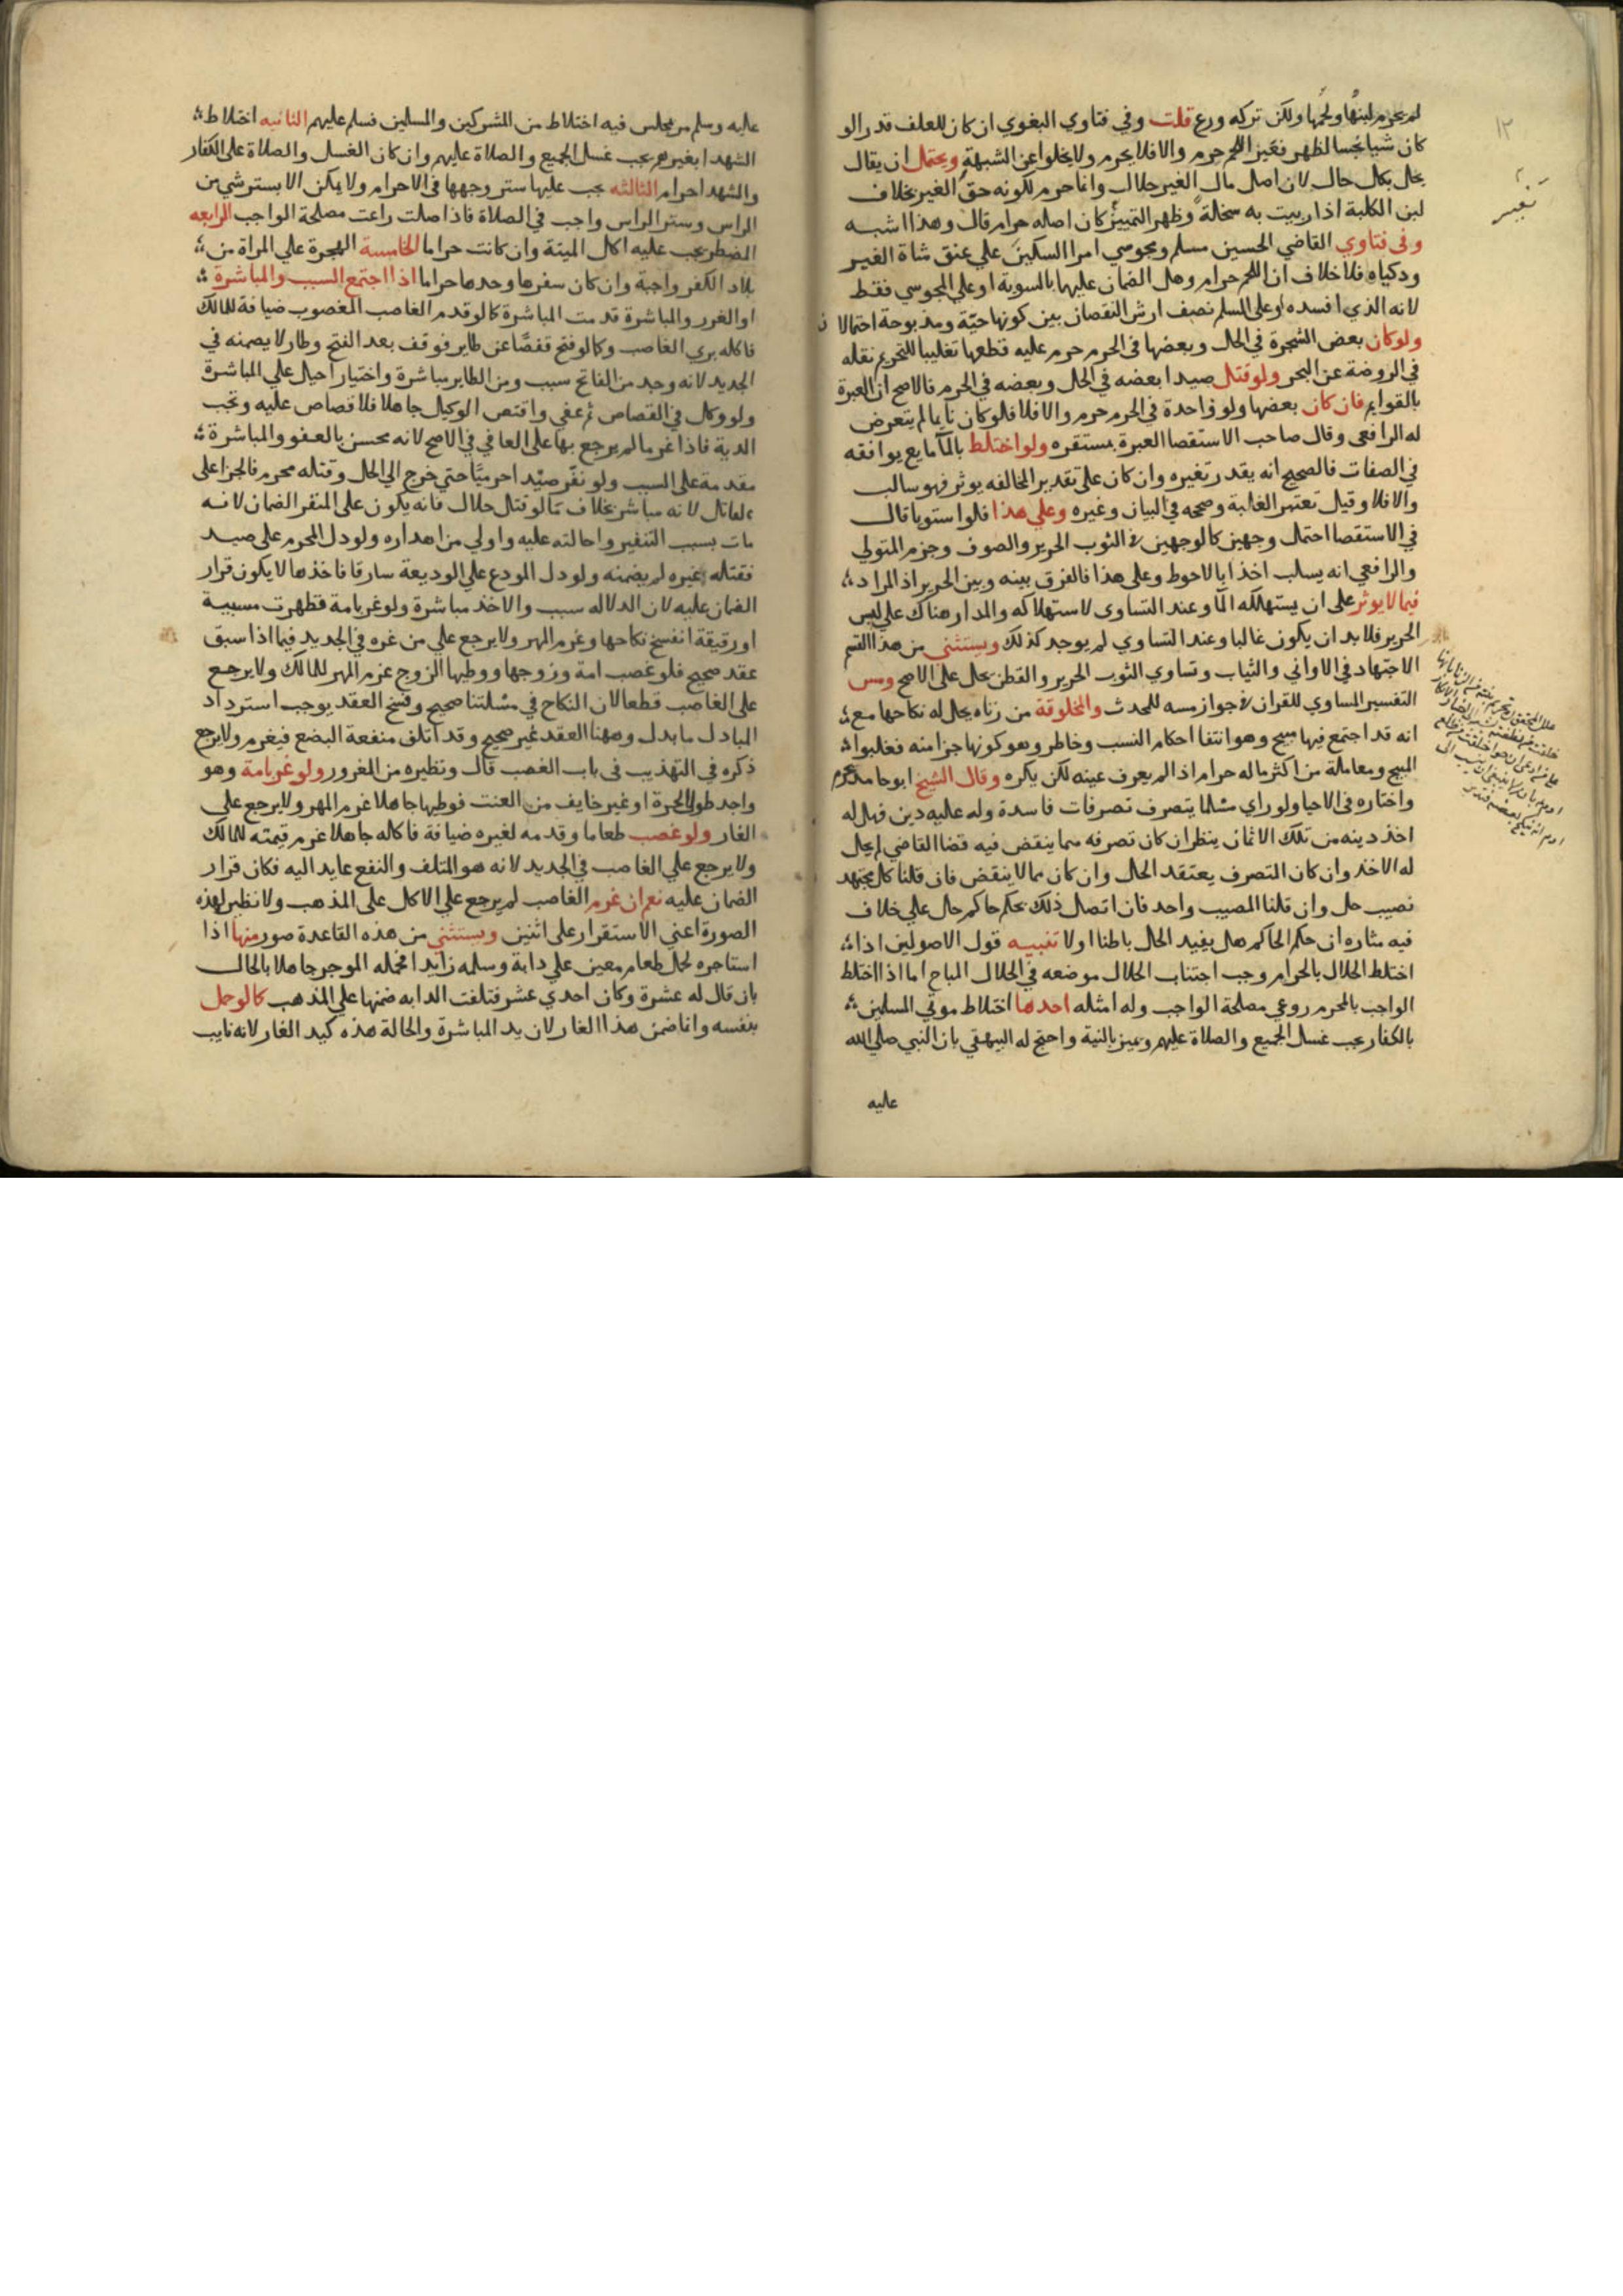 لم يحرم لبنها ولحمها ولكن تركه ورع قلت وفي فتاوي البغوي ان كان للعلف قدر الو
كان شيا نجسا لظهر تغير اللحم حرم والا فلا يحرم ولا يخلوا عن الشبهة ويحتمل ان يقال
يحل بكل حال لان اصل مال الغير حلال وانما حرم لكونه حق الغير بخلاف
لبن الكلبة اذا ربيت به سخلة وظهر التمييز كان اصله حرام قال وهذا اشبه
وفي فتاوي القاضي الحسين مسلم ومجوسي امرا السكين علي عنق شاة الغير
وذكياه فلا خلاف ان اللحم حرام وهل الضمان عليها بالسوية او علي المجوسي فقط
لانه الذي افسده او على المسلم نصف ارش النقصان بين كونها حية ومذبوحة احتمالا
ولو كان بعض الشجرة في الحل وبعضها في الحرم حرم عليه قطعها تغليبا للتحريم نقله
في الروضة عن البحر ولو قتل صيدا بعضه في الحل وبعضه في الحرم فالاصح ان العبرة
بالقوايم فان كان بعضها ولو واحدة في الحرم حرم والا فلا فلو كان نايما لم يتعرض
له الرافعي وقال صاحب الاستقصا العبرة بمستقره ولو اختلط بالما مايع يوافقه
في الصفات فالصحيح انه يقدر بغيره وان كان على تقدير المخالفه يوثر فهو سالب
والا فلا وقيل تعتبر الغلبة وصححه في البيان وغيره وعلي هذا فلو استويا قال
في الاستقصا احتمل وجهين كالوجهين في الثوب الحرير والصوف وجزم المتولي
والرافعي انه يسلب اخذا بالاحوط وعلى هذا فالفرق بينه وبين الحرير اذ المراد
فيما لا يوثر على ان يستهلكه الما وعند التساوى لا استهلاكه والمدار هناك علي لبس
الحرير فلا بد ان يكون غالبا وعند التساوي لم يوجد كذلك ويستثنى من هذا القسم
الاجتهاد في الاواني والثياب وتساوي الثوب الحرير والقطن يحل على الاصح ومس
التفسير المساوي للقران في جواز مسه للمحدث والمخلوقة من زناه يحل له نكاحها مع
انه قد اجتمع فيها مبيح وهو انتفا احكام النسب وخاطر وهو كونها جزا منه فغلبوا
المبيح ومعاملة من اكثر ماله حرام اذا لم يعرف عينه لكن يكره وقال الشيخ ابو حامد تحرم
واختاره في الاحيا ولو راي مسلما يتصرف تصرفات فاسدة وله عليه دين فهل له
اخذ دينه من تلك الاثمان ينظر ان كان تصرفه مما ينقض فيه قضا القاضي لم يحل
له الاخذ وان كان التصرف يعتقد الحل وان كان مما لا ينقض فان قلنا كل مجتهد
نصيب حل وان قلنا المصيب واحد فان اتصل ذلك بحكم حاكم حل علي خلاف
فيه مثاره ان حكم الحاكم هل يفيد الحل باطنا او لا تنبيه قول الاصولين اذا
اختلط الحلال بالحرام وجب اجتناب الحلال موضعه في الحلال المباح اما اذا اختلط
الواجب بالمحرم روعي مصلحة الواجب وله امثله احدها اختلاط موتي المسلمين
بالكفار يجب غسل الجميع والصلاة عليهم ويميز بالنية واحتج له البيهقي بان النبي صلي الله
عليه
١٢
عليه وسلم مر بمجلس فيه اختلاط من المشركين والمسلمين فسلم عليهم الثانيه اختلاط
الشهدا بغيرهم يجب غسل الجميع والصلاة عليهم وان كان الغسل والصلاة على الكفار
والشهدا حرام الثالثه يجب عليها ستر وجهها في الاحرام ولا يمكن الا بستر شي من
الراس وستر الراس واجب في الصلاة فاذا صلت راعت مصلحة الواجب الرابعه
المضطر يجب عليه اكل الميتة وان كانت حراما الخامسة الهجرة علي المراة من
بلاد الكفر واجبة وان كان سفرها وحدها حراما اذا اجتمع السبب والمباشرة
او الغرر والمباشرة قدمت المباشرة كما لو قدم الغاصب المغصوب ضيافة للمالك
فاكله بري الغاصب وكما لو فتح قفصا عن طاير فوقف بعد الفتح وطار لا يضمنه في
الجديد لانه وجد من الفاتح سبب ومن الطاير مباشرة واختيار احيل علي المباشرة
ولو وكل في القصاص ثم عفي واقتص الوكيل جاهلا فلا قصاص عليه وتجب
الدية فاذا غرمها لم يرجع بها على العافي في الاصح لانه محسن بالعفو والمباشرة
مقدمة على السبب ولو نفر صيدا حرميا حتي خرج الي الحل وقتله محرم فالجزا على
القاتل لانه مباشر بخلاف ما لو قتل حلال فانه يكون على المنفر الضمان لانه
مات بسبب التنفير واحالته عليه واولي من اهداره ولو دل المحرم على صيد
فقتله غيره لم يضمنه ولو دل المودع علي الوديعة سارقا فاخذها لا يكون قرار
الضمان عليه لان الدلاله سبب والاخذ مباشرة ولو غر بامة فظهرت مسبية
او رقيقة انفسخ نكاحها وغرم المهر ولا يرجع علي من غره في الجديد فيما اذا سبق
عقد صحيح فلو غصب امة وزوجها ووطيها الزوج غرم المهر للمالك ولا يرجع
على الغاصب قطعا لان النكاح في مسئلتنا صحيح وفسخ العقد يوجب استرداد
المبادل ما بدل وههنا العقد غير صحيح وقد اتلف منفعة البضع فيغرم ولا يرجع
ذكره في التهذيب في باب الغصب قال ونظيره من الغرور ولو غر بامة وهو
واجد طول الحرة او غير خايف من العنت فوطيها جاهلا غرم المهر ولا يرجع على
الغار ولو غصب طعاما وقدمه لغيره ضيافة فاكله جاهلا غرم قيمته للمالك
ولا يرجع علي الغاصب في الجديد لانه هو المتلف والنفع عايد اليه فكان قرار
الضمان عليه نعم ان غرم الغاصب لم يرجع علي الاكل على المذهب ولا نظير لهذه
الصورة اعني الاستقرار على اثنين ويستثنى من هذه القاعدة صور منها اذا
استاجره لحمل طعام معين علي دابة وسلمه زايدا فحمله الموجر جاهلا بالحال
بان قال له عشرة وكان احدي عشر فتلفت الدابه ضمنها علي المذهب كما لو حمل
بنفسه وانما ضمن هذا الغار لان يد المباشرة والحالة هذه كيد الغار لانه نايب